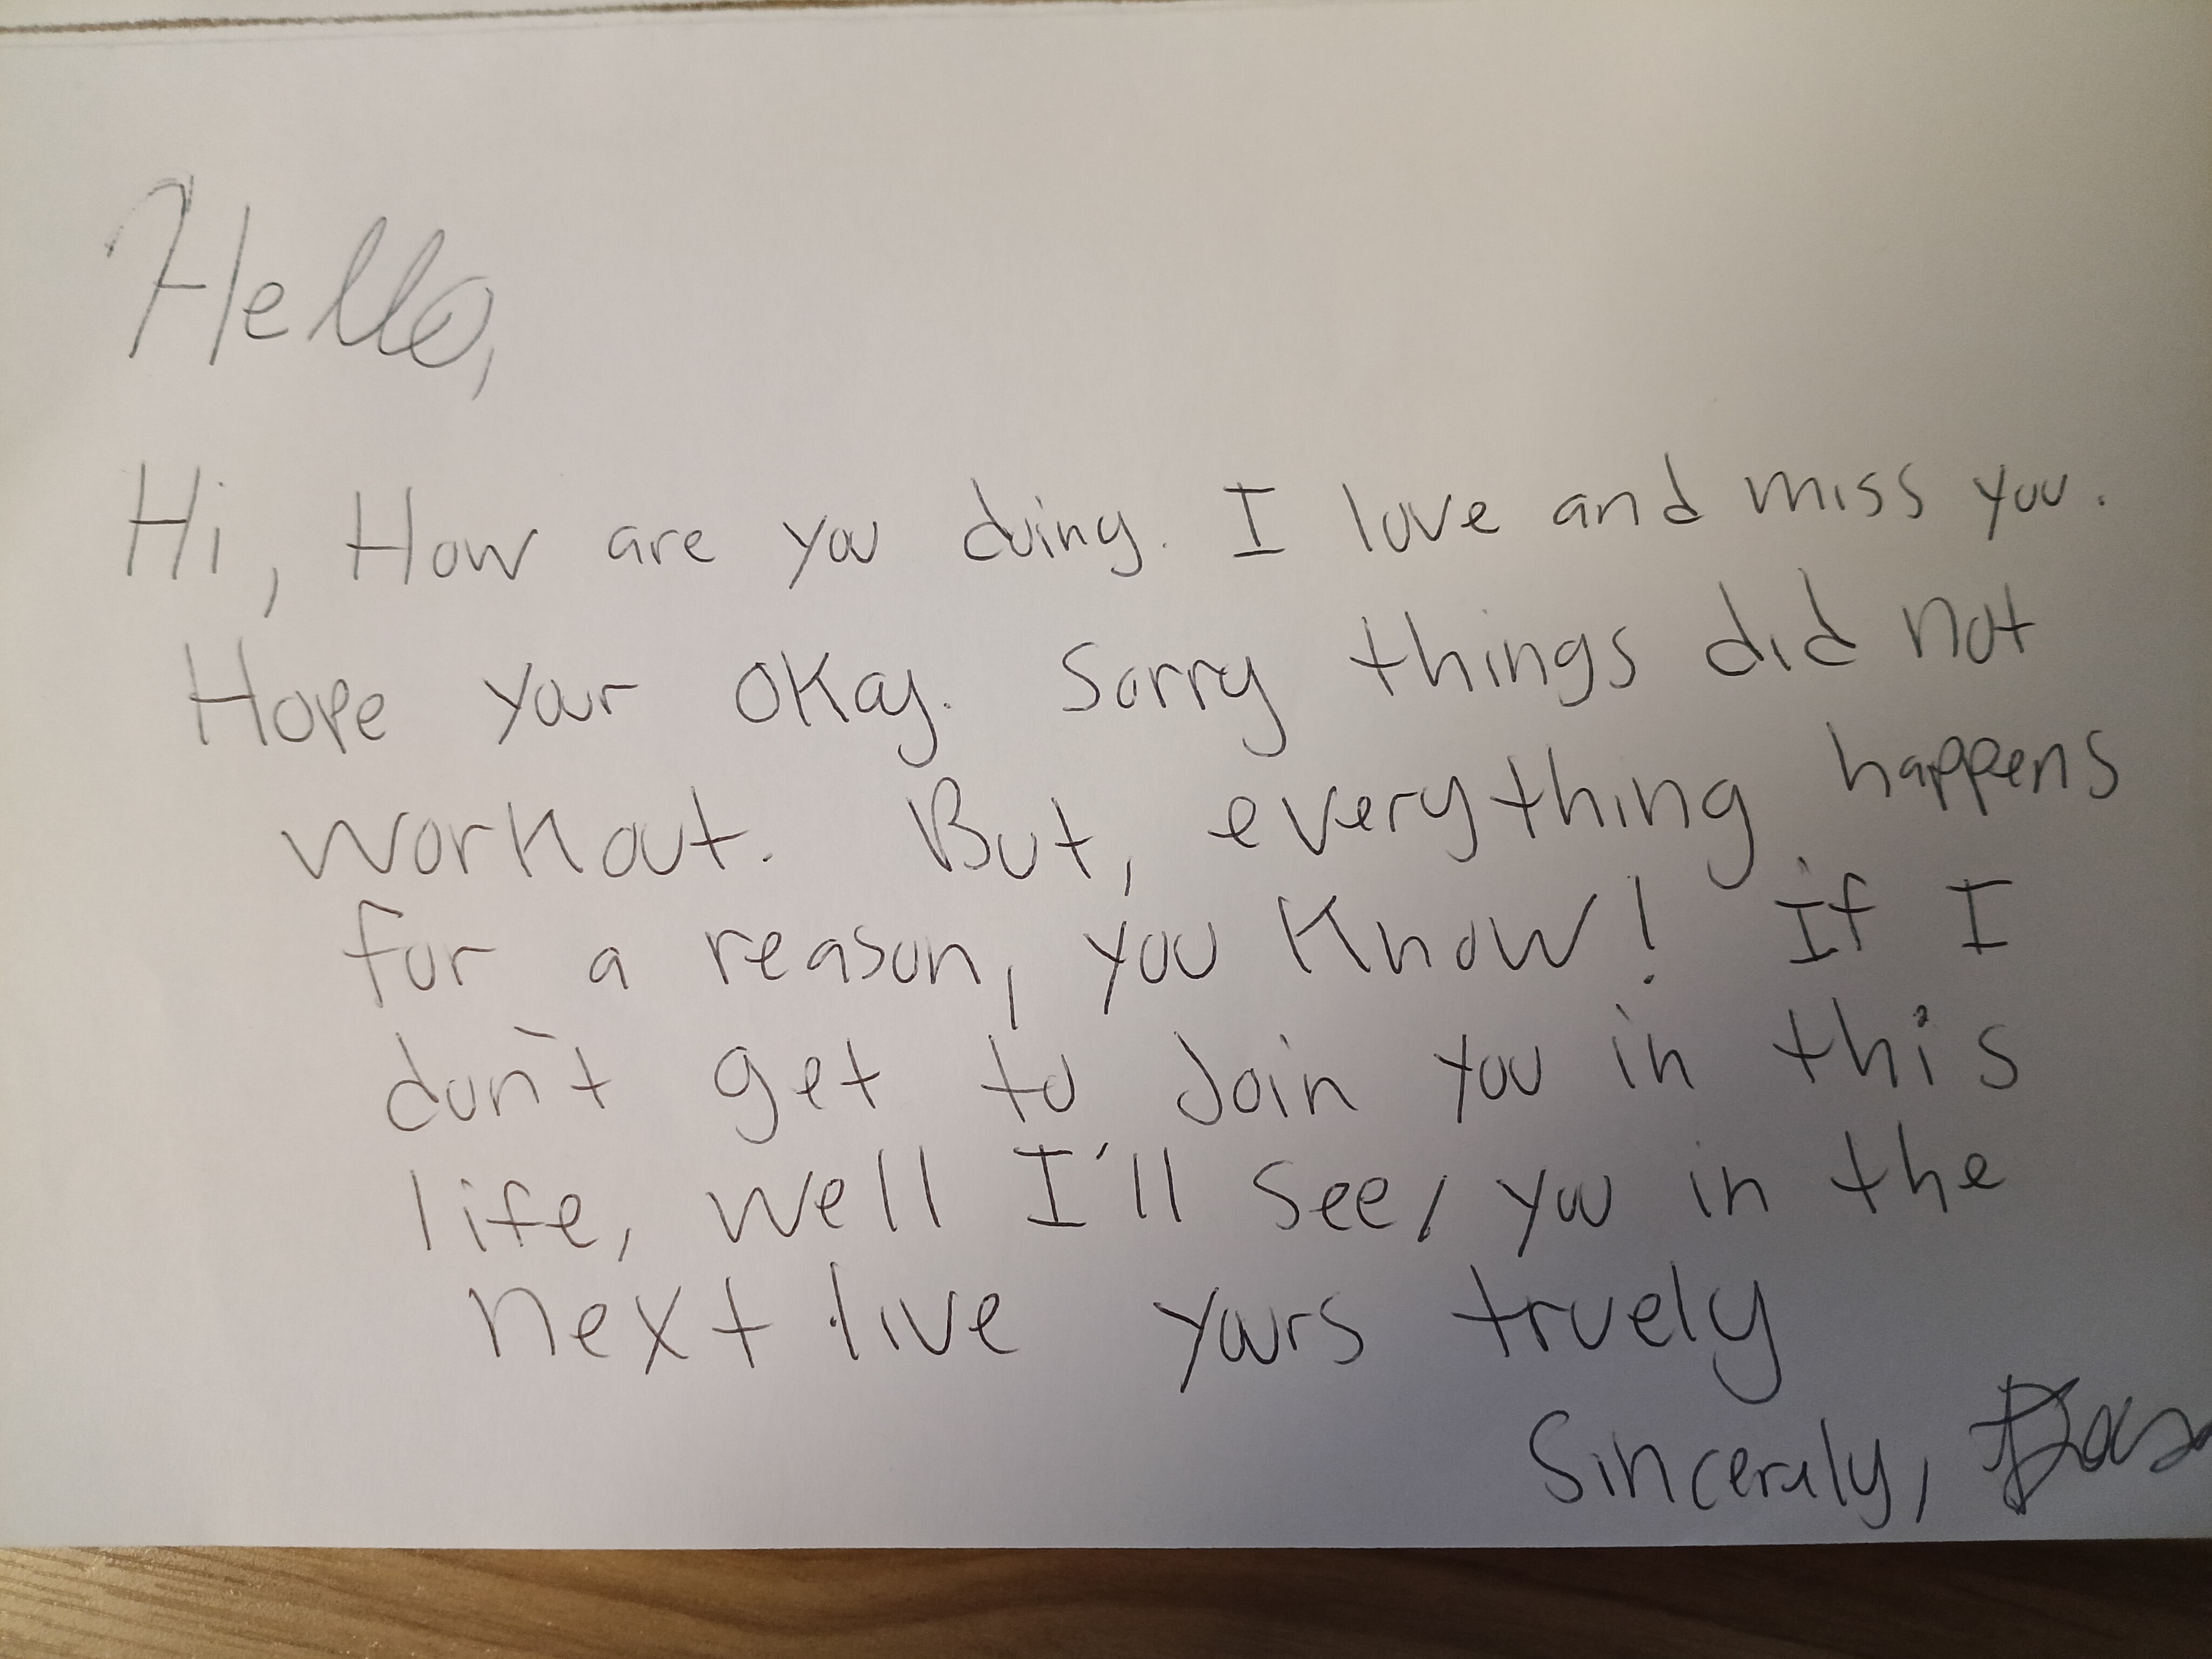 Hello,
Hi, How are you doing. I love and miss you.
Hope your okay. Sorry things did not
workout. But, everything happens
for a reason, you know! If I
don't get to Join you in this
life, well I'll see, you in the
next live yours truely
Sinceraly,